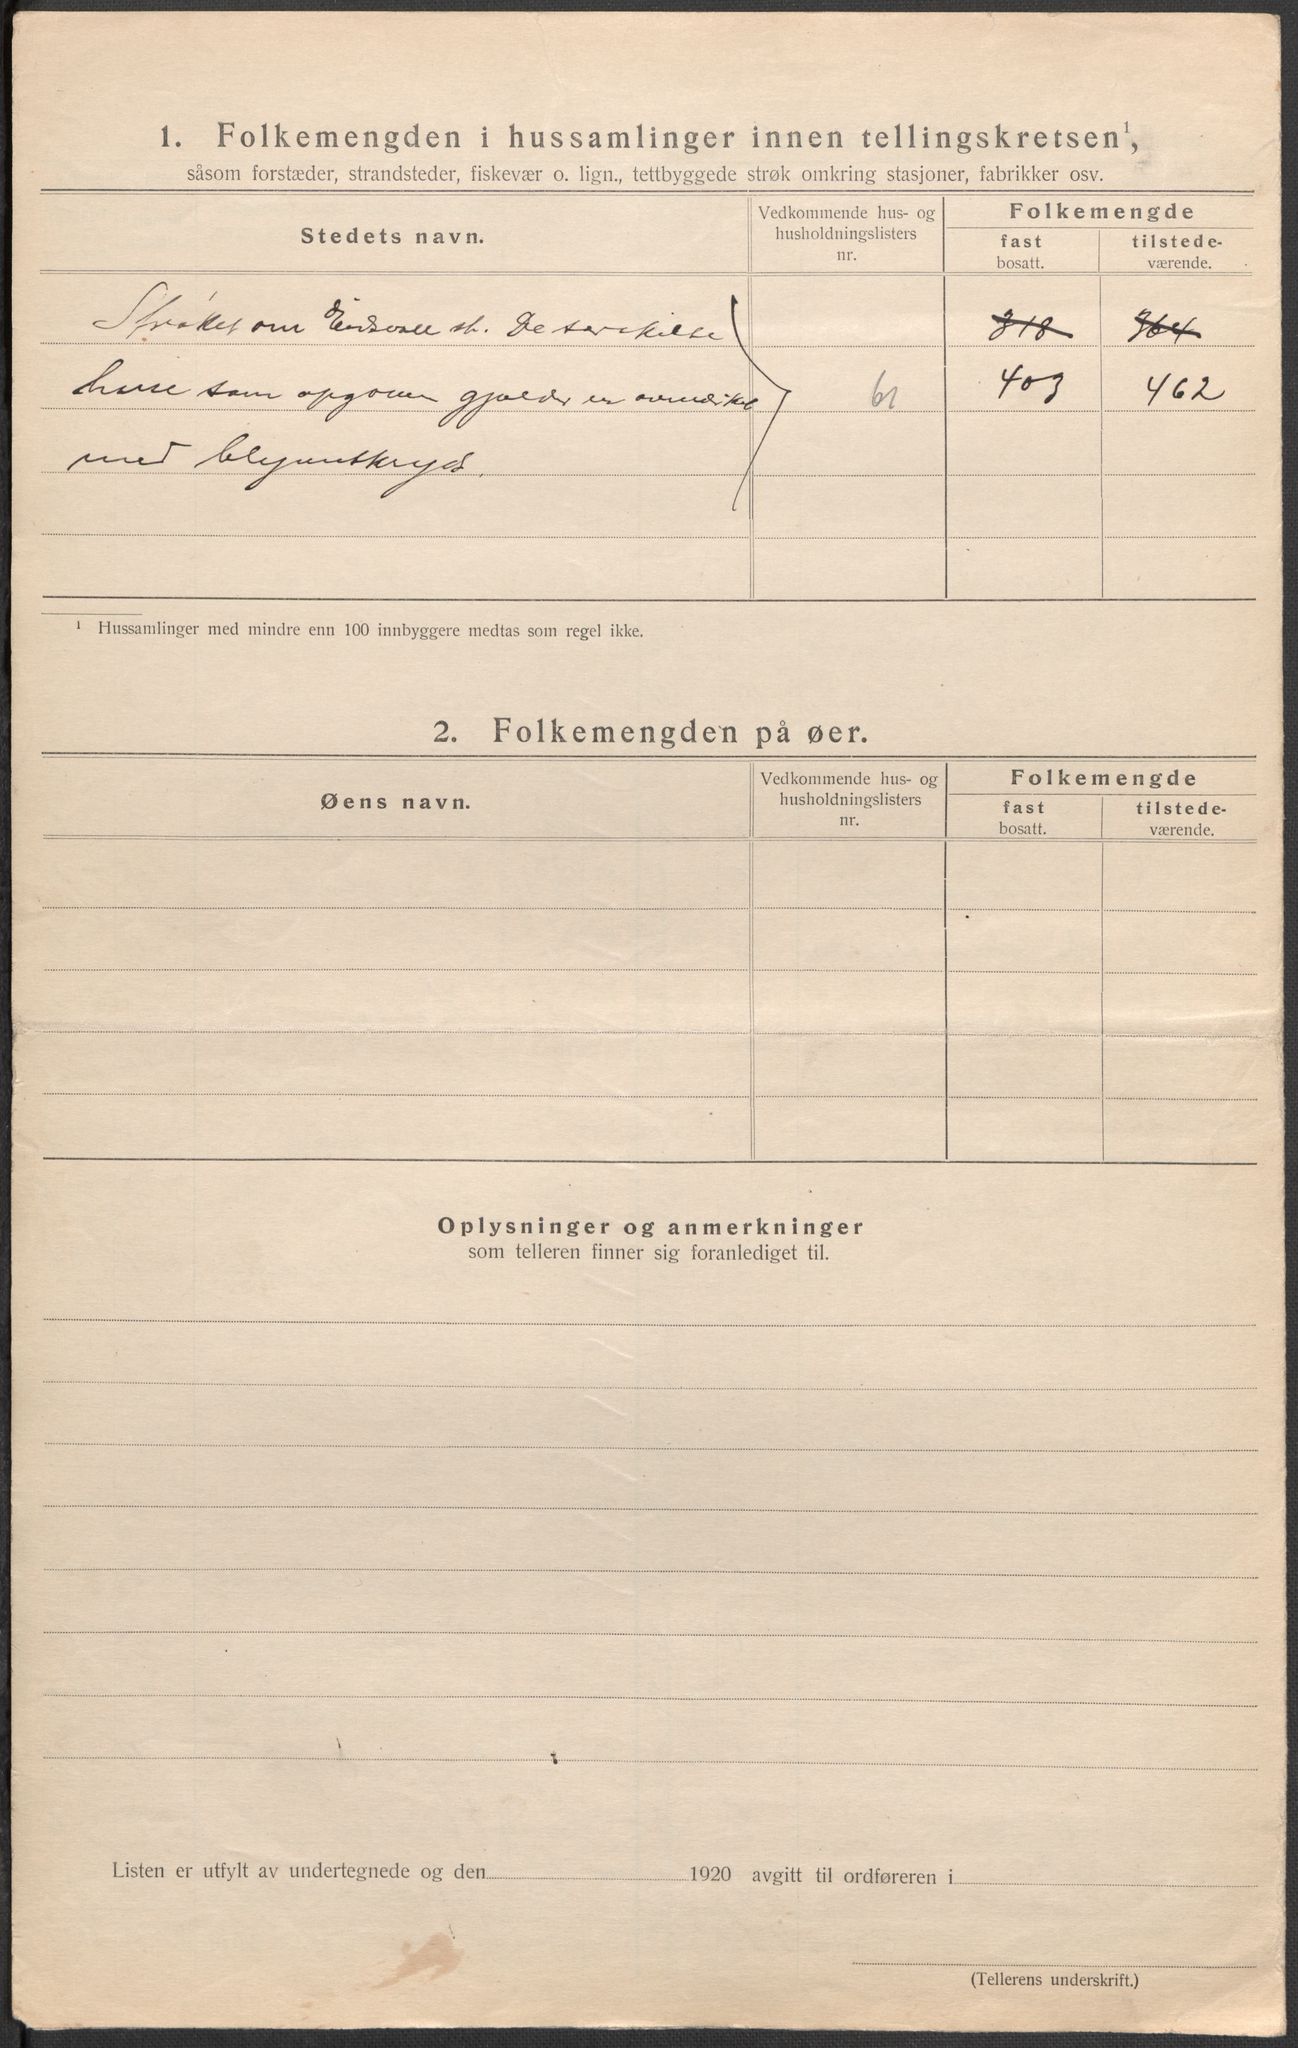 1. Folkemengden i hussamlinger innen tellingskretsen¹,
såsom forstæder, strandsteder, fiskevær o. lign., tettbyggede strøk omkring stasjoner, fabrikker osv.
Stedets navn.
Vedkommende hus- og
husholdningslisters
nr.
Folkemengde
fast
bosatt.
tilstede-
værende.
Strøket om Eidsvoll st. De særskilte
318
364
huse som opgaven gjælder er avmerket
61
403
462
med blyantkryds.
¹ Hussamlinger med mindre enn 100 innbyggere medtas som regel ikke.
2. Folkemengden på øer.
Øens navn.
Vedkommende hus- og
husholdningslisters
nr.
Folkemengde
fast
bosatt.
tilstede-
værende.
Oplysninger og anmerkninger
som telleren finner sig foranlediget til.
Listen er utfylt av undertegnede og den 1920 avgitt til ordføreren i
(Tellerens underskrift.)